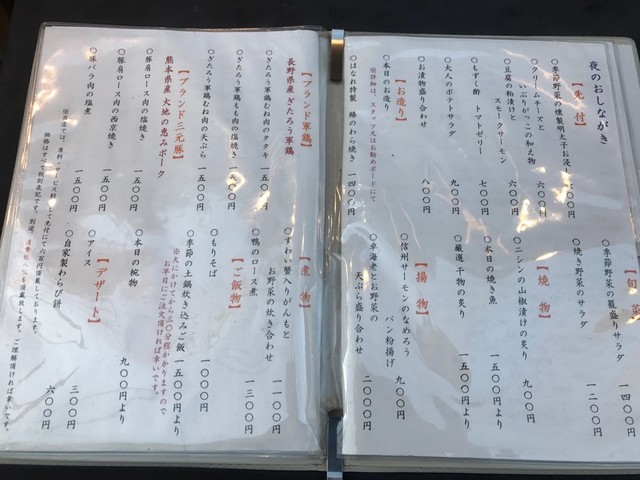 夜のおしながき
【先付】
〇季節野菜の燻製明太子お浸し
〇クリームチーズと
いぶりがっこの和え物
六〇〇円
〇豆腐の粕漬けと
スモークサーモン
六〇〇円
〇もずく酢 トマトゼリー
七〇〇円
〇大人のポテトサラダ
九〇〇円
〇お漬物盛り合わせ
八〇〇円
【お造り】
〇本日のお造り
※詳細は、スタッフ又はお勧めボードにて
〇はなれ特製 鰆のわら焼き
一四〇〇円
【旬菜】
〇季節野菜の籠盛りサラダ
一四〇〇円
〇焼き野菜のサラダ
一二〇〇円
【焼物】
〇ニシンの山椒漬けの炙り
九〇〇円
〇本日の焼き魚
一五〇〇円より
〇厳選 干物の炙り
一五〇〇円より
【揚物】
〇信州サーモンのなめろう
パン粉揚げ
九〇〇円
〇車海老とお野菜の
天ぷら盛り合わせ
二〇〇〇円
【ブランド軍鶏】
長野県産ぎたろう軍鶏
〇ぎたろう軍鶏むね肉のタタキ
一五〇〇円
〇ぎたろう軍鶏もも肉の塩焼き
〇ぎたろう軍鶏むね肉の天ぷら
一五〇〇円
【ブランド三元豚】
熊本県産 大地の恵みポーク
〇豚肩ロース肉の塩焼き
一五〇〇円
〇豚肩ロース肉の西京焼き
一五〇〇円
〇豚バラ肉の塩煮
一五〇〇円
【煮物】
〇ずわい蟹入りがんもと
お野菜の炊き合わせ
一一〇〇円
〇鴨のロース煮
一三〇〇円
【ご飯物】
〇もりそば
一〇〇〇円
〇季節の土鍋炊き込みご飯
一五〇〇円より
※火にかけてから三〇分程かかりますので
お早目にご注文頂ければ幸いです。
〇本日の椀物
九〇〇円より
【デザート】
〇アイス
三〇〇円
〇自家製わらび餅
六〇〇円